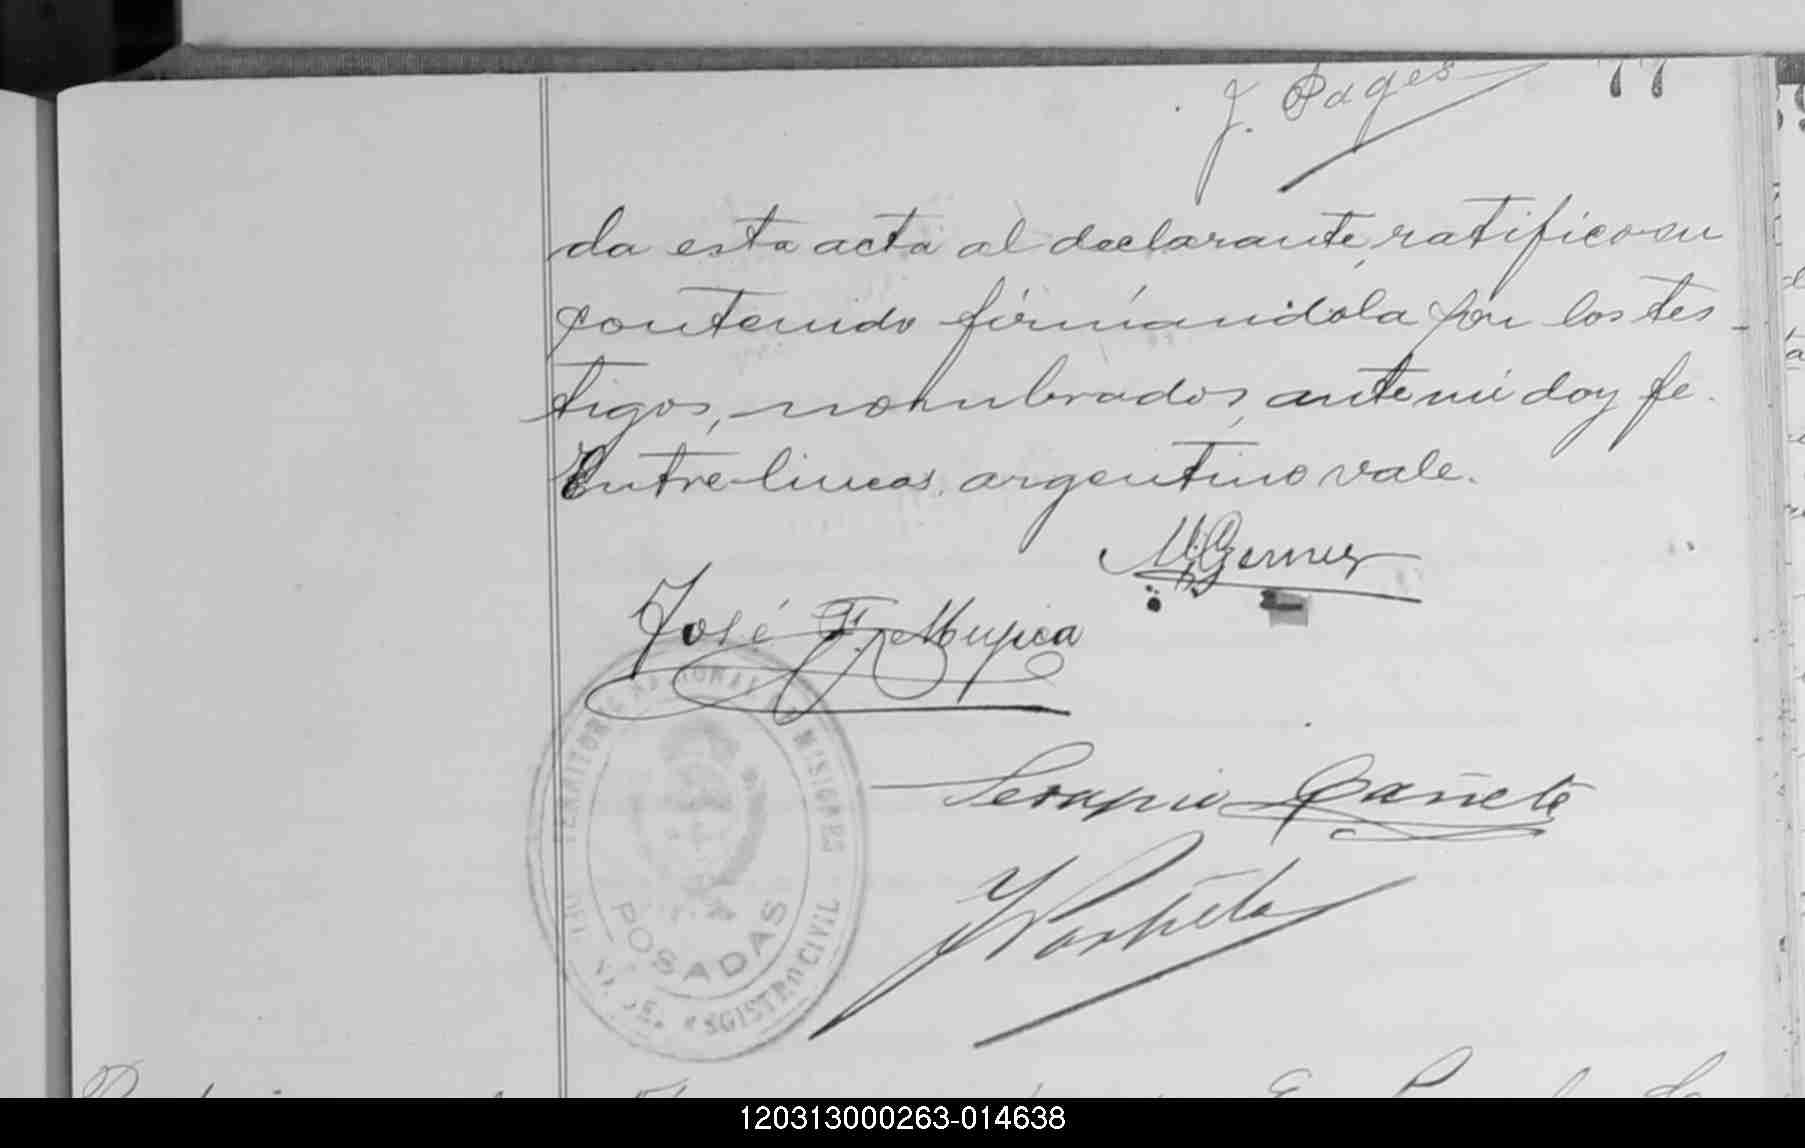 J. Pages 77
da esta acta al declarante, ratificó su
contenido firmándola con los tes-
tigos, nombrados, ante mi doy fe.
Entre-lineas. argentino vale.
José F. Mujica
Serapio Cañete
TERRITORIO NACIONAL DE MISIONES
POSADAS
REGISTRO CIVIL
120313000263-014638